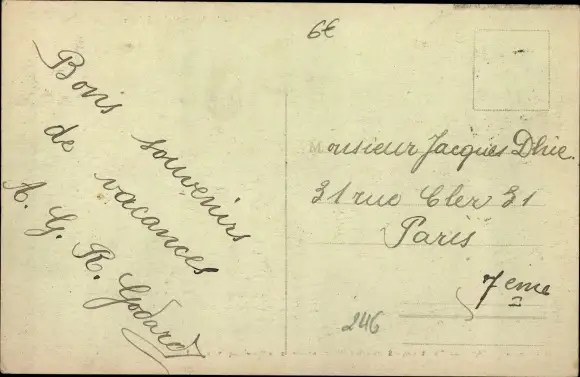 6€
Bons souvenirs
de vacances
A. G. R. Godard
Monsieur Jacques Dhie.
31 rue Cler 31
Paris
7eme
246